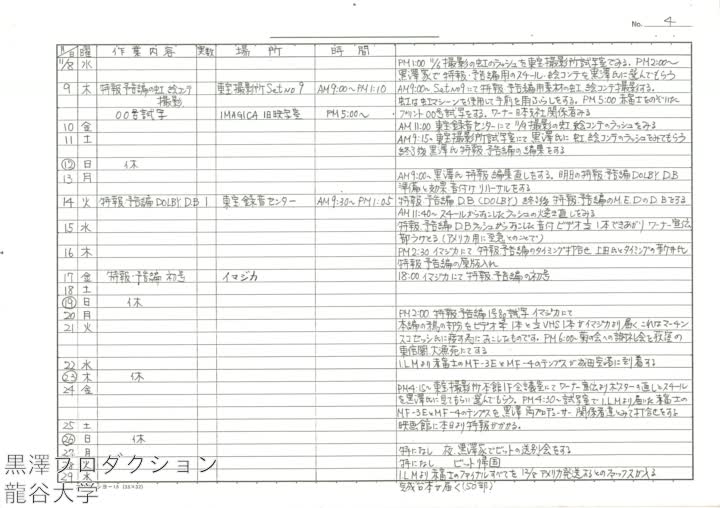 No. 4
月日 曜 作業内容 実数 場所 時間
11/8 水 PM1:00 11/4撮影の虹のラッシュを東宝撮影所試写室でみる。PM2:00〜
黒澤家で特報・予告編用のスチール・絵コンテを黒澤氏に選んでもらう
9 木 特報・予告編の虹 絵コンテ 東宝撮影所Sat.no9 AM9:00〜PM1:10 AM9:00〜 Sat.no9にて特報・予告編用素材の虹、絵コンテ撮影する。
撮影 虹は虹マシーンを使用して手前を用
00号試写 IMAGICA 旧映写室 PM5:00〜 プリント00号試写をする。ワーナー日本支社関係者みる
10 金 AM11:00 東宝録音センターにて11/9撮影の虹 絵コンテのラッシュをみる
11 土 AM9:15〜東宝撮影所試写室にて黒澤氏に虹、絵コンテのラッシュをみてもらう
終了後黒澤氏 特報・予告編の編集をする
12 日 休
13 月 AM9:00〜黒澤氏 特報・編集直しをする。明日の特報・予告編DOLBY DB
準備と効果音付けリハーサルをする
14 火 特報・予告編DOLBY D.B 1 東宝録音センター AM9:30〜PM1:05 特報・予告編D.B(DOLBY) 終了後 特報・予告編のM.E.DのD.Bをする
AM11:40〜スチールから
15 水 特報・予告編D.B ラッシュから 音付ビデオ 1本できあがり ワーナー宣伝
部うけとる(アメリカ用に至急とのことで)
16 木 PM2:30 イマジカにて特報・予告編のタイミング打合せ 上田氏とタイミングの
特報・予告編の原版入れ
17 金 特報・予告編 初号 イマジカ 18:00 イマジカにて特報・予告編の初号
18 土
19 日 休
20 月 PM2:00 特報・予告編 試写 イマジカにて
21 火 本編の鴉の部分をビデオ 1本とVHS1本がイマジカより届く これはマーチン
スコセッシ氏に おこしたものです。PM6:00〜 の会への謝礼会を荻窪の
東信閣 にてする
22 水 I.L.Mより赤富士のMF-3EとMF-4のテンプスが成田空港に到着する
23 木 休
24 金 PM4:15〜東宝撮影所本館1F会議室にてワーナー宣伝よりポスターの直しとスチール
を黒澤氏に見てもらい選んでもらう。PM4:30〜試写室でI.L.Mより届いた赤富士の
MF-3EとMF-4のテンプスを黒澤、両プロデューサー、関係者達とみて打合せをする
25 土 映画館に本日より特報がかかる。
26 日 休
27 月 特になし 夜、黒澤家でピットの送別会をする
28 火 特になし ピット帰国
29 水 I.L.Mより赤富士のファイナルすべてを12/8アメリカ発送するとのファックスが入る
台本が届く(50部)
黒澤プロダクション
龍谷大学